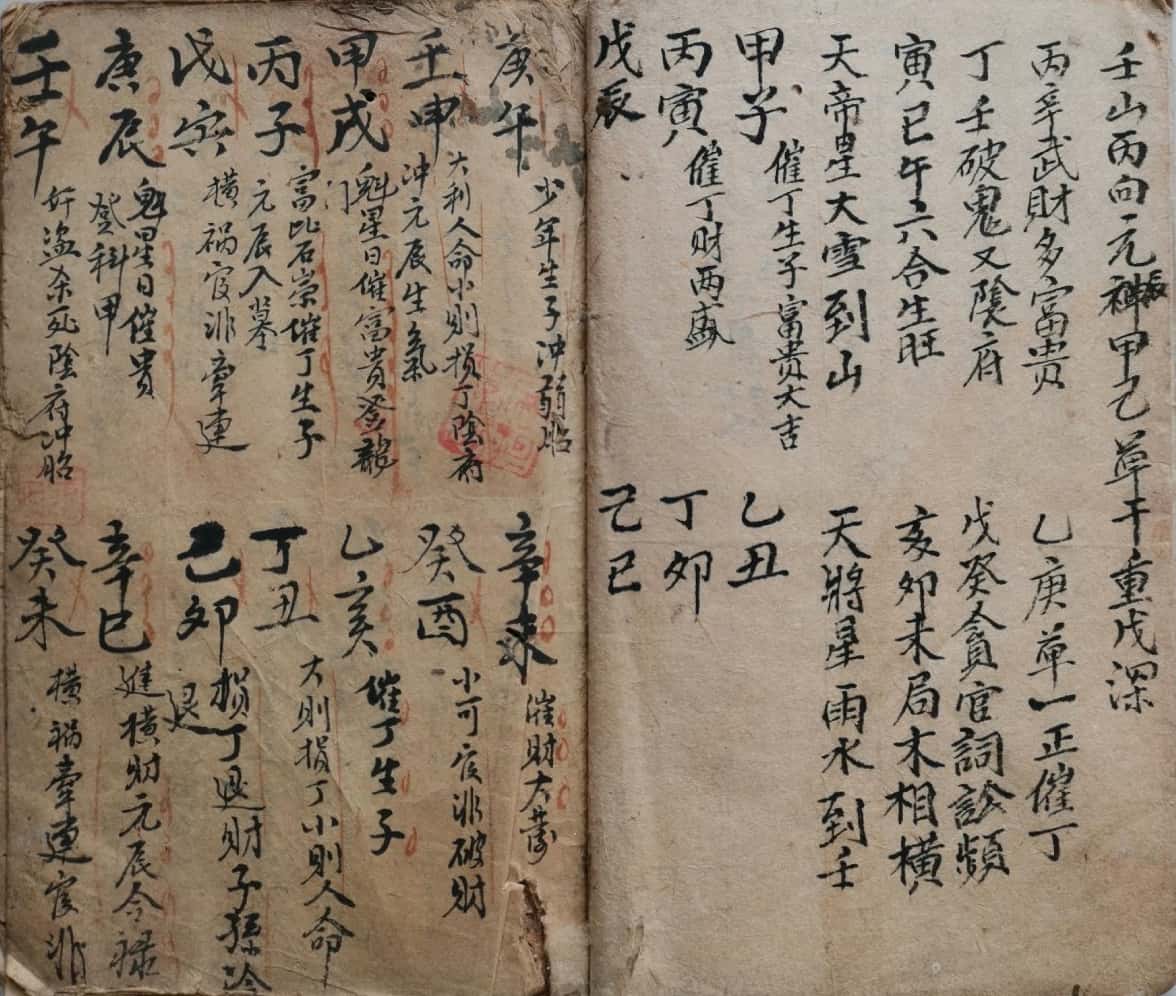 壬山丙向元神甲己單干重戊深
丙辛武財多富贵 乙庚單一正催丁
丁壬破鬼又陰府 戊癸貪官詞訟頻
寅巳午六合生旺 亥卯未局木相橫
天帝星大雪到山 天將星雨水到壬
甲子 催丁生子富貴大吉
乙丑
丙寅 催丁财两盛
丁卯
戊辰
己巳
庚午 少年生子冲弱胎
辛未 催财大蓄
壬申 大利人命小則损丁陰府
冲元辰生氣
癸酉 小可官非破财
甲戌 魁星日催富貴登龍
门
乙亥 催丁生子
丙子 富比石崇催丁生子
元辰入墓
丁丑 大則損丁小則人命
戊寅 橫禍官非牽連
己卯 損丁退财子孫冷
退
庚辰 魁星日催貴
登科甲
辛巳 進橫财元辰令祿
壬午 奸盜杀死陰府冲胎
癸未 橫禍牽連官非